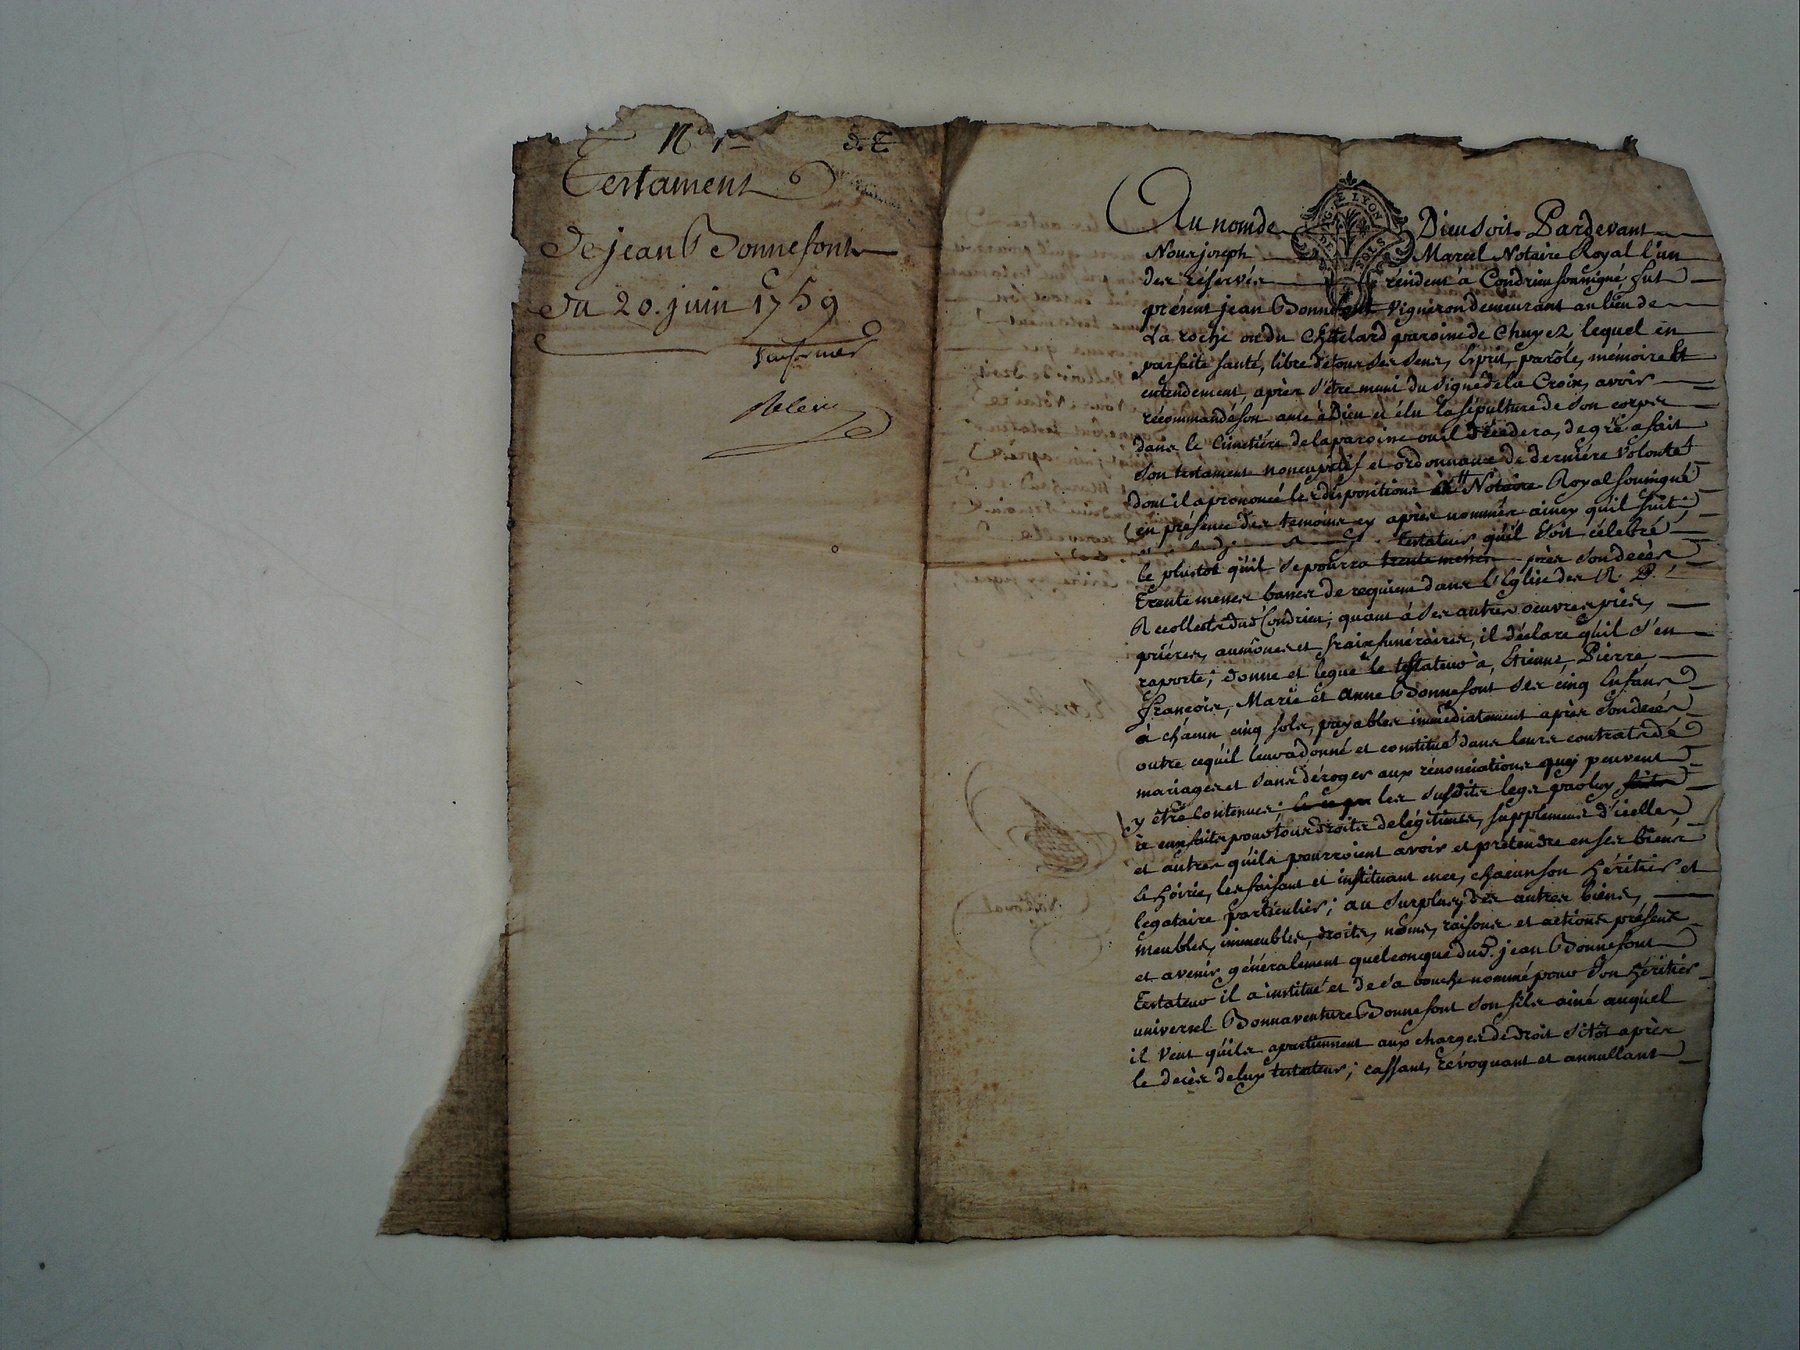 N° 1er
d. T.
Testament
De jean Bonnefont
Du 20. juin 1759
Au nom de Dieu soit. Pardevant
Nous joseph Marcel Notaire Royal l'un
des réservés résident à Condrieu soussigné, fut
présent jean Bonnefont vigneron demeurant au lieu de
La roche ou du Chatelard paroisse de Chuyez lequel en
parfaite santé, libre de tous ses sens, Esprit, parole, mémoire et
entendement, après s'être muni du signe de la Croix, avoir
récommandé son ame à Dieu et élu la sépulture de son corps
dans le Cimetière de la paroisse ou il décedera, de gré a fait
son testament noncupatif et ordonnance de dernière volonté
dont il a prononcé les dispositions Notaire Royal soussigné
en presence des temoins cy après nommés ainsy qu'il suit,
testateur qu'il soit célébré
le plustot qu'il se pourra trente messes près son decès
trente messes basses de requiem dans l'Eglise des R. P.
Recollets dud. Condrieu, quant à ses autres oeuvres pies,
prières, aumônes et fraix funéraires, il déclare qu'il s'en
raporte; donne et legue le testateur à, Etienne, Pierre
françois, Marie et anne Bonnefont ses cinq Enfans
à chacun cinq sols, payables immédiatement après son decés
outre ce qu'il leur a donné et constitué dans leurs contrats de
mariages et sans déroger aux rénonciations quy peuvent
y être contenues; les susdits legs par luy faits
à eux faits pour tous droits de légitime, supplement d'icelle,
et autres qu'ils pourroient avoir et prétendre en ses biens
et hoirie, les faisant et instituant en ce, chacun son héritier et
legataire particulier; au surplus de ses autres biens,
meubles, immeubles, droits, noms, raisons et actions présents
et avenir, généralement quelconque dud. jean Bonnefont
Testateur il a institué et de sa bouche nommé pour son héritier
universel Bonnaventure Bonnefont son fils ainé auquel
il veut qu'ils apartiennent aux charges de droit sitôt après
le decès de luy testateur; cassant, révoquant et annullant